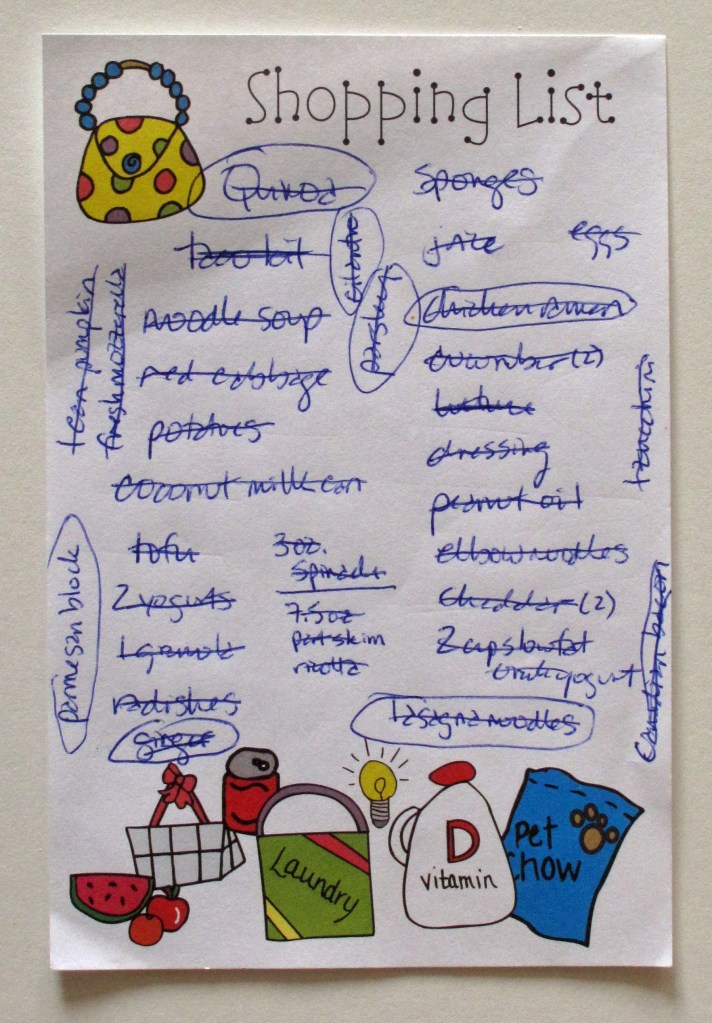 Shopping List
Quinoa
Sponges
taco kit
cilantro
juice
eggs
parsley
noodle soup
chicken ramen
red cabbage
cucumber (2)
potatoes
lettuce
dressing
coconut milk can
peanut oil
tofu
3 oz.
spinach
elbow noodles
2 yogurts
7.5 oz
part skim
ricotta
cheddar (2)
1 granola
2 cups lowfat
yogurt
radishes
ginger
lasagna noodles
1 can pumpkin
fresh mozzarella
parmesan block
Canadian bacon
Laundry
D
vitamin
Pet
Chow